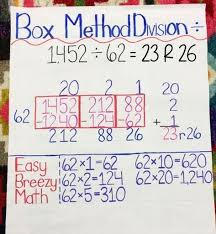 Box Method Division ÷
1452 ÷ 62 = 23 R 26
20 2 1 20
62 1452 212 88 2
-1240 -124 -62 + 1
212 88 26 23r26
Easy 62×1=62 62×10=620
Breezy 62×2=124 62×20=1,240
Math 62×5=310